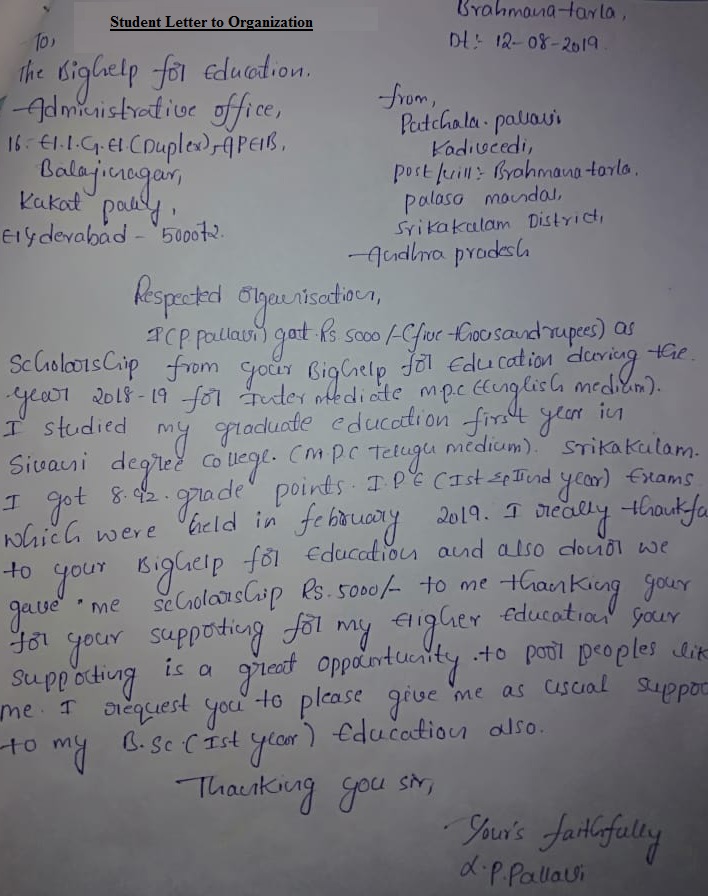 Student Letter to Organization
Brahmana-tarla,
Dt:- 12-08-2019.
To,
The Bighelp for Education.
Administrative office,
16. H.I.G.H (Duplex), APHB,
Balajinagar,
Kukat pally,
Hyderabad - 500072.
from,
Patchala. pallavi
Kadiveedi,
post/vill:- Brahmana-tarla.
palasa mandal,
Srikakulam District,
Andhra pradesh
Respected Organisation,
I (P. pallavi) got Rs 5000/- (five thousand rupees) as
Scholarship from your Bighelp for Education during the
year 2018-19 for Inter mediate m.p.c (English medium).
I studied my graduate education first year in
Sivani degree college. (M.P.C Telugu medium). Srikakulam.
I got 8.92. grade points. I.P.E (Ist & IInd year) Exams
which were held in february 2019. I really thankfu
to your Bighelp for Education and also donor we
gave me scholarship Rs. 5000/- to me thanking your
for your supporting for my Higher Education your
supporting is a great oppourtunity to poor peoples lik
me. I request you to please give me as usual suppor
to my B.Sc (Ist year) Education also.
Thanking you sir,
Your's faithfully
P. Pallavi